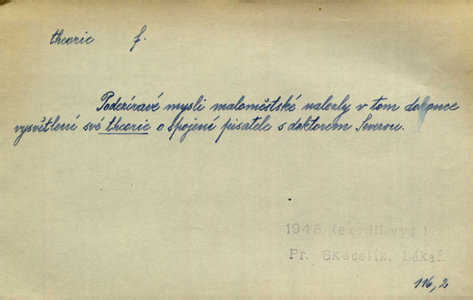 theorie f.
Podezíravé mysli maloměstské nalezly v tom dokonce
vysvětlení své theorie o spojení pisatele s doktorem Severou.
1948 (exc.III.vyd.)
Fr. Skácelík, Lékař
116, 2